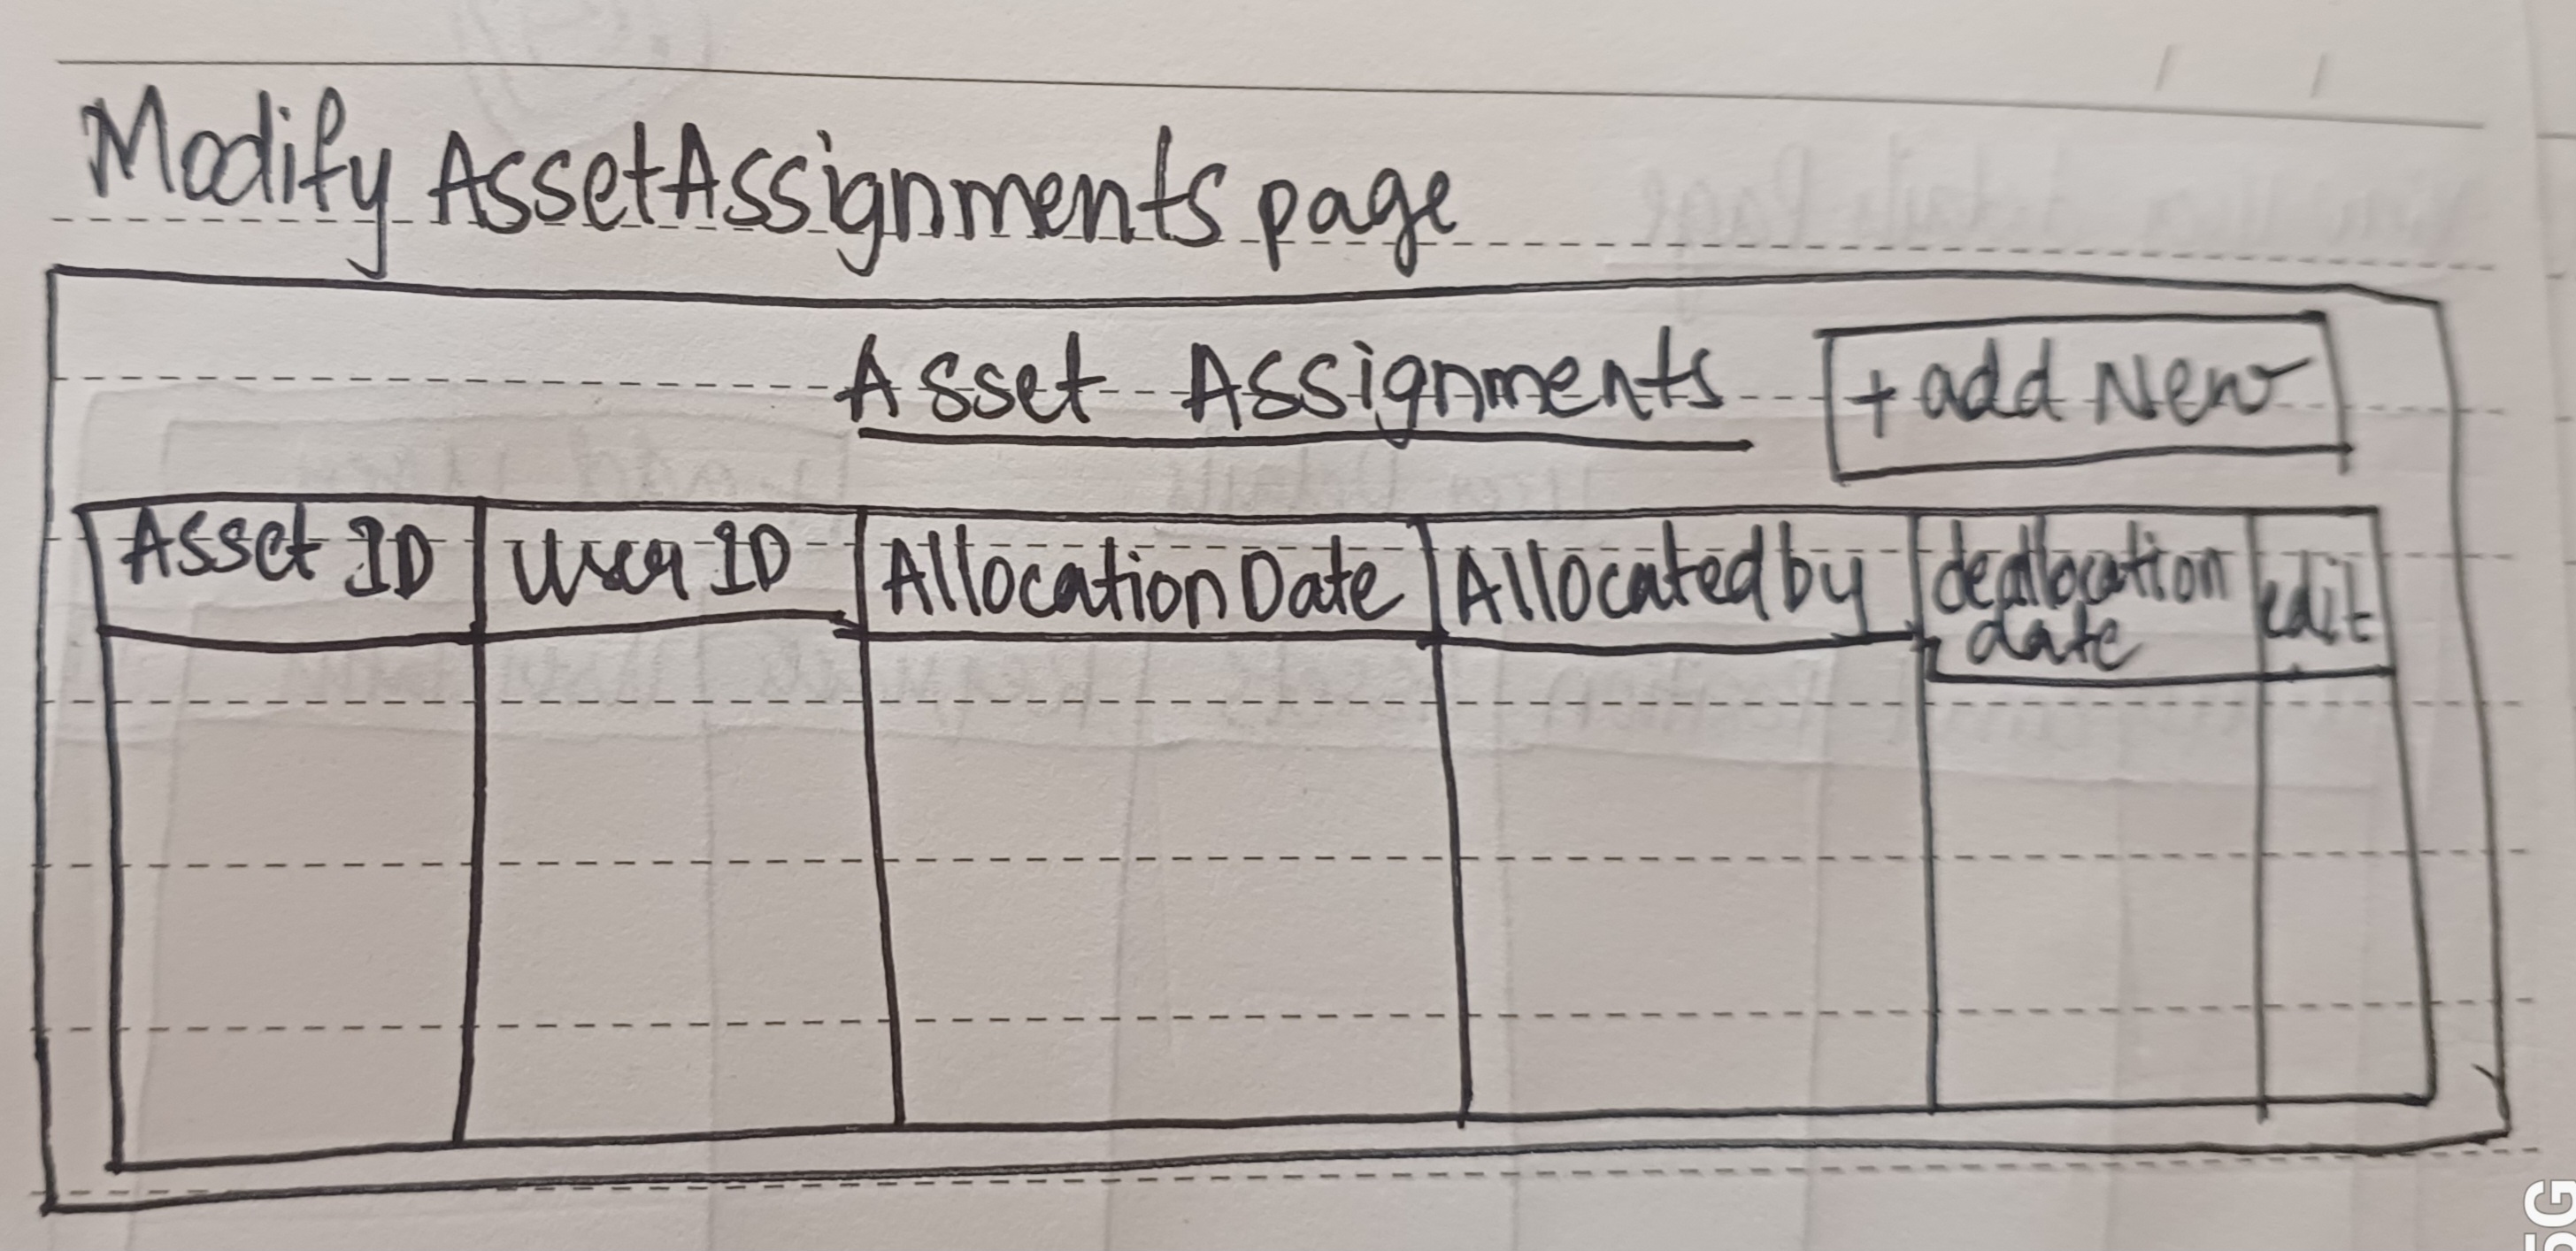 Modify AssetAssignments page
Asset Assignments
+ add New
Asset ID
User ID
Allocation Date
Allocated by
deallocation
date
edit
5G